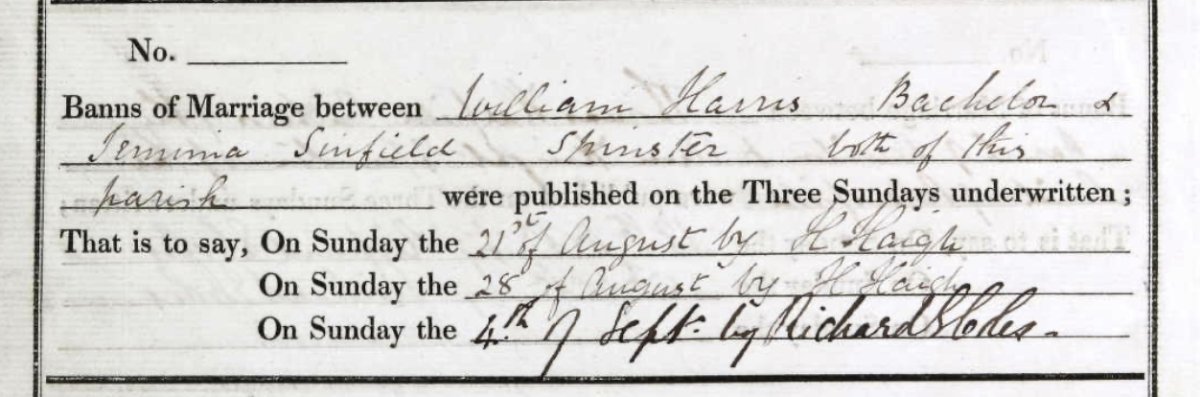 No.
Banns of Marriage between William Harris Bachelor &
Jemima Sinfield Spinster both of this
parish were published on the Three Sundays underwritten;
That is to say, On Sunday the 21st of August by H Haigh
On Sunday the 28 of August by H Haigh
On Sunday the 4th of Sept. by Richard